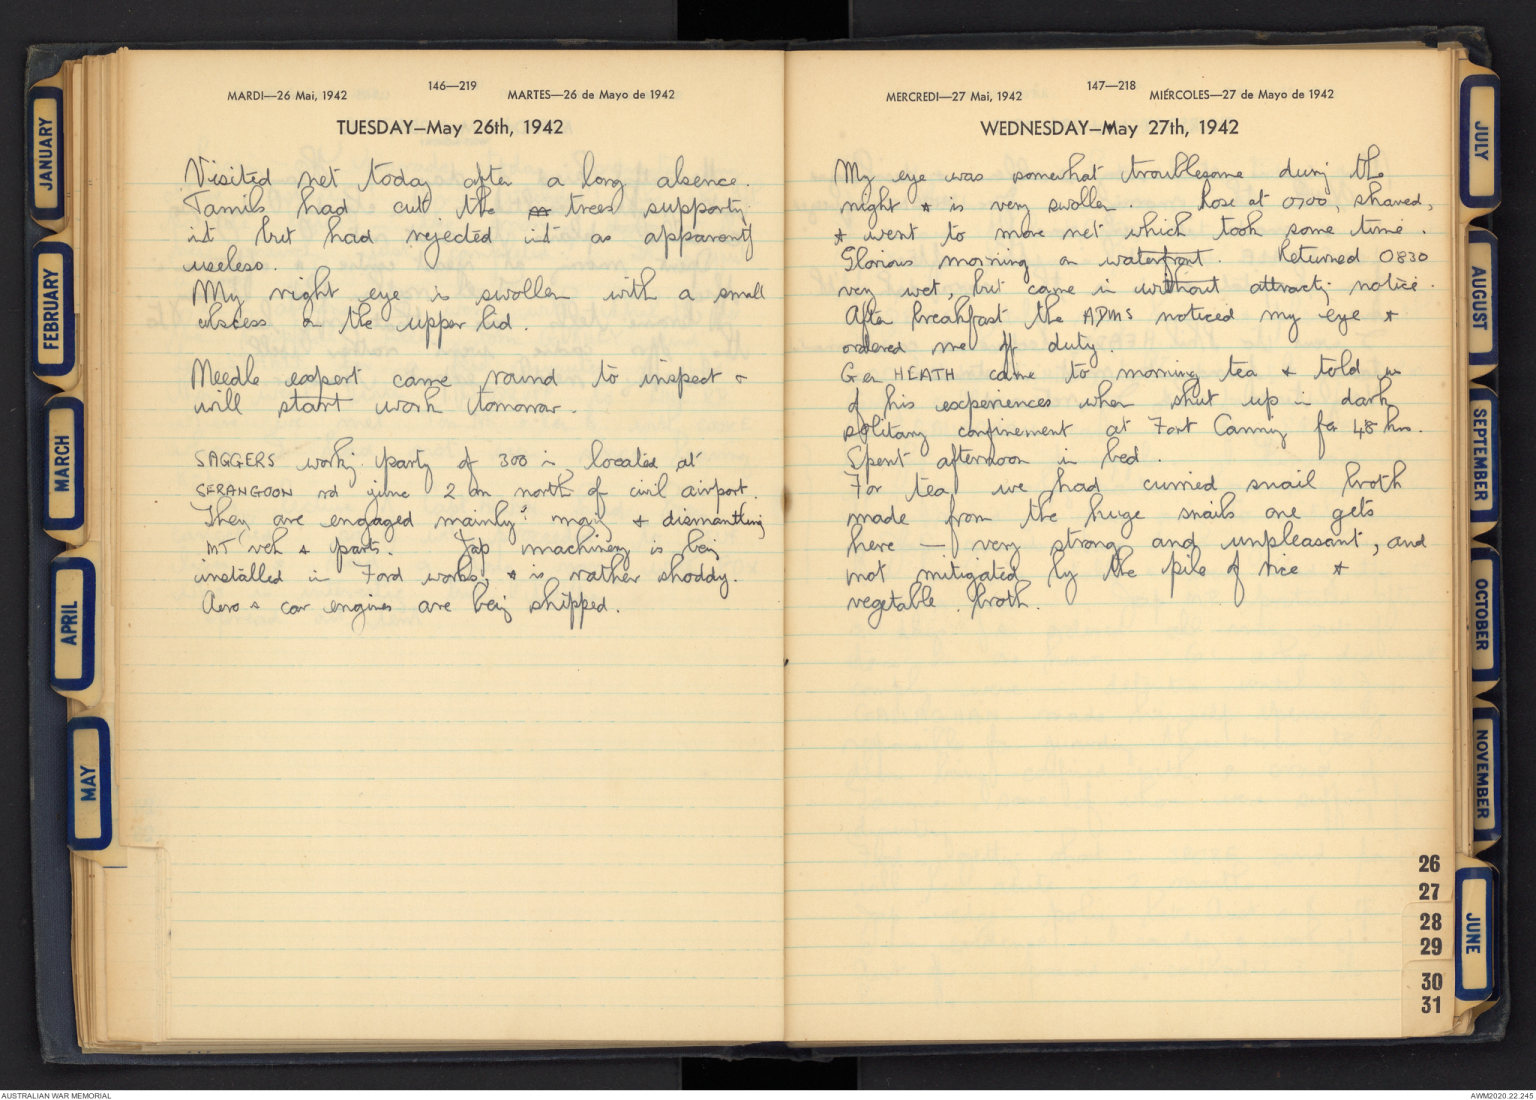 JANUARY
FEBRUARY
MARCH
APRIL
MAY
146—219
MARDI—26 Mai, 1942 MARTES—26 de Mayo de 1942
TUESDAY—May 26th, 1942
Visited net today after a long absence.
Tamils had cut the trees supporty
it but had rejected it as apparently
useless.
My right eye is swollen with a small
abscess on the upper lid.
Needle expert came round to inspect &
will start work tomorrow.
SAGGERS workg party of 300 is located at
SERANGOON rd june 2 on north of civil airport.
They are engaged mainly movg & dismantling
MT veh & parts. Jap machinery is being
installed in Ford works, & is rather shoddy.
Aero & car engines are being shipped.
147—218
MERCREDI—27 Mai, 1942 MIÉRCOLES—27 de Mayo de 1942
WEDNESDAY—May 27th, 1942
My eye was somewhat troublesome durig the
night & is very swollen. Rose at 0700, shaved,
& went to move net which took some time.
Glorious morning on waterfront. Returned 0830
very wet, but came in without attractg notice.
After breakfast the ADMS noticed my eye &
ordered me off duty.
Gen HEATH came to morning tea & told us
of his experiences when shut up in dark
solitary confinement at Fort Canning for 48 hrs.
Spent afternoon in bed.
For tea we had curried snail broth
made from the huge snails one gets
here — very strong and unpleasant, and
not mitigated by the pile of rice &
vegetable broth.
JULY
AUGUST
SEPTEMBER
OCTOBER
NOVEMBER
JUNE
26
27
28
29
30
31
AUSTRALIAN WAR MEMORIAL AWM2020.22.245